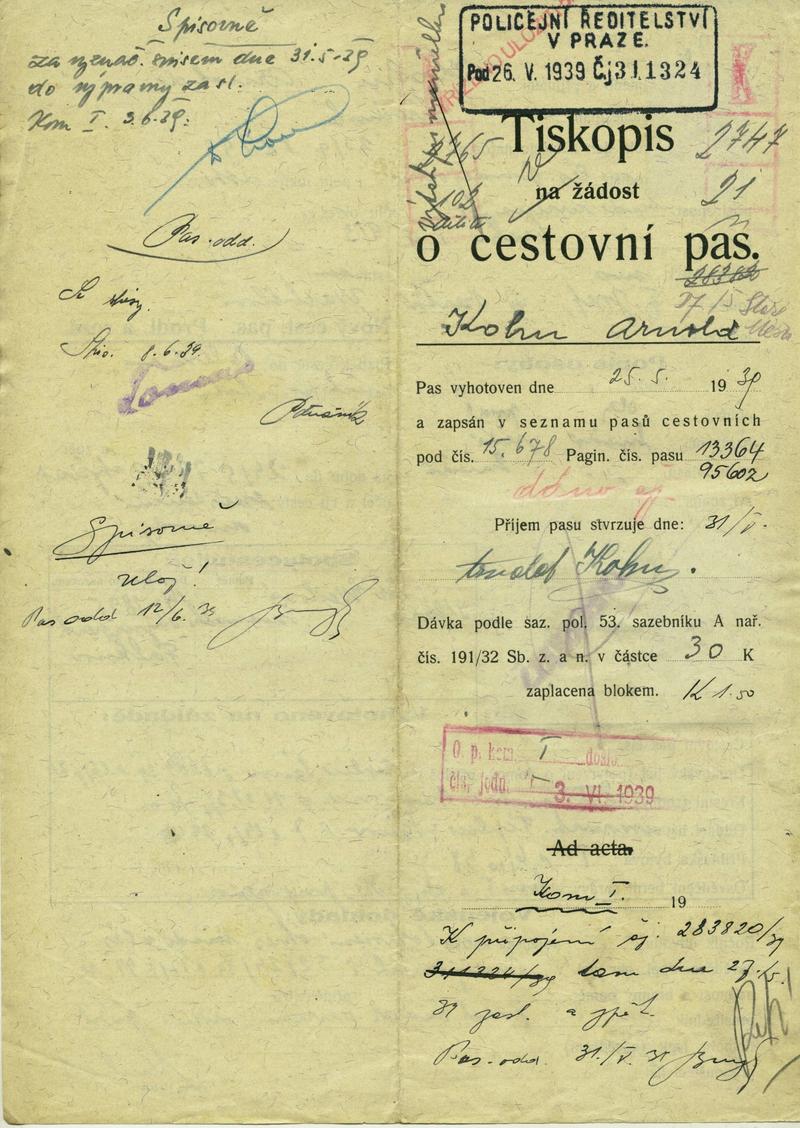 Spisovně
za vyznač. dne 31.5.39
do výpravny zasl.
Kom I. 3.6.39.
Pas. odd.
K
8.6.39.
Spisovně
ulož!
Pas odd 12/6. 39
POLICEJNÍ ŘEDITELSTVÍ
V PRAZE.
Pod 26. V. 1939 Čj 311324
Tiskopis
2747
na žádost
21
102
o cestovní pas.
Kohn Arnold
Pas vyhotoven dne 25.5. 1939
a zapsán v seznamu pasů cestovních
pod čís. 15.678 Pagin. čís. pasu 13364
95602
dáno
Příjem pasu stvrzuje dne: 31/V.
Kohn.
Dávka podle saz. pol. 53. sazebníku A nař.
čís. 191/32 Sb. z. a n. v částce 30 K
zaplacena blokem. K 1.50
O. p. kom. I došlo
čís. jedn. 3. VI. 1939
Ad acta.
Kom I. 19
K připojení čj. 283820/39
311324/39 tam dne 27./5.
39 zasl. a zpět.
Pas. odd. 31./V. 39